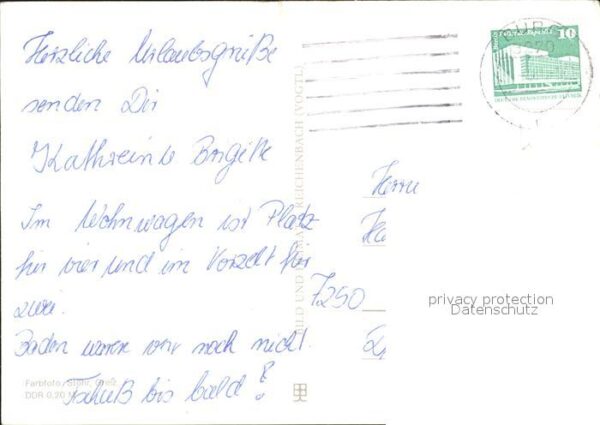 Herzliche Urlaubsgrüße
senden Dir
Kathrein & Brigitte
Im Wohnwagen ist Platz
für vier und im Vorzelt für
zwei.
Baden waren wir noch nicht.
Tschüß bis bald!
Farbfoto: Stöhr, Greiz
DDR 0,20 M
BILD UND HEIMAT REICHENBACH (VOGTL)
10
DEUTSCHE DEMOKRATISCHE REPUBLIK
Herrn
7250
privacy protection
Datenschutz